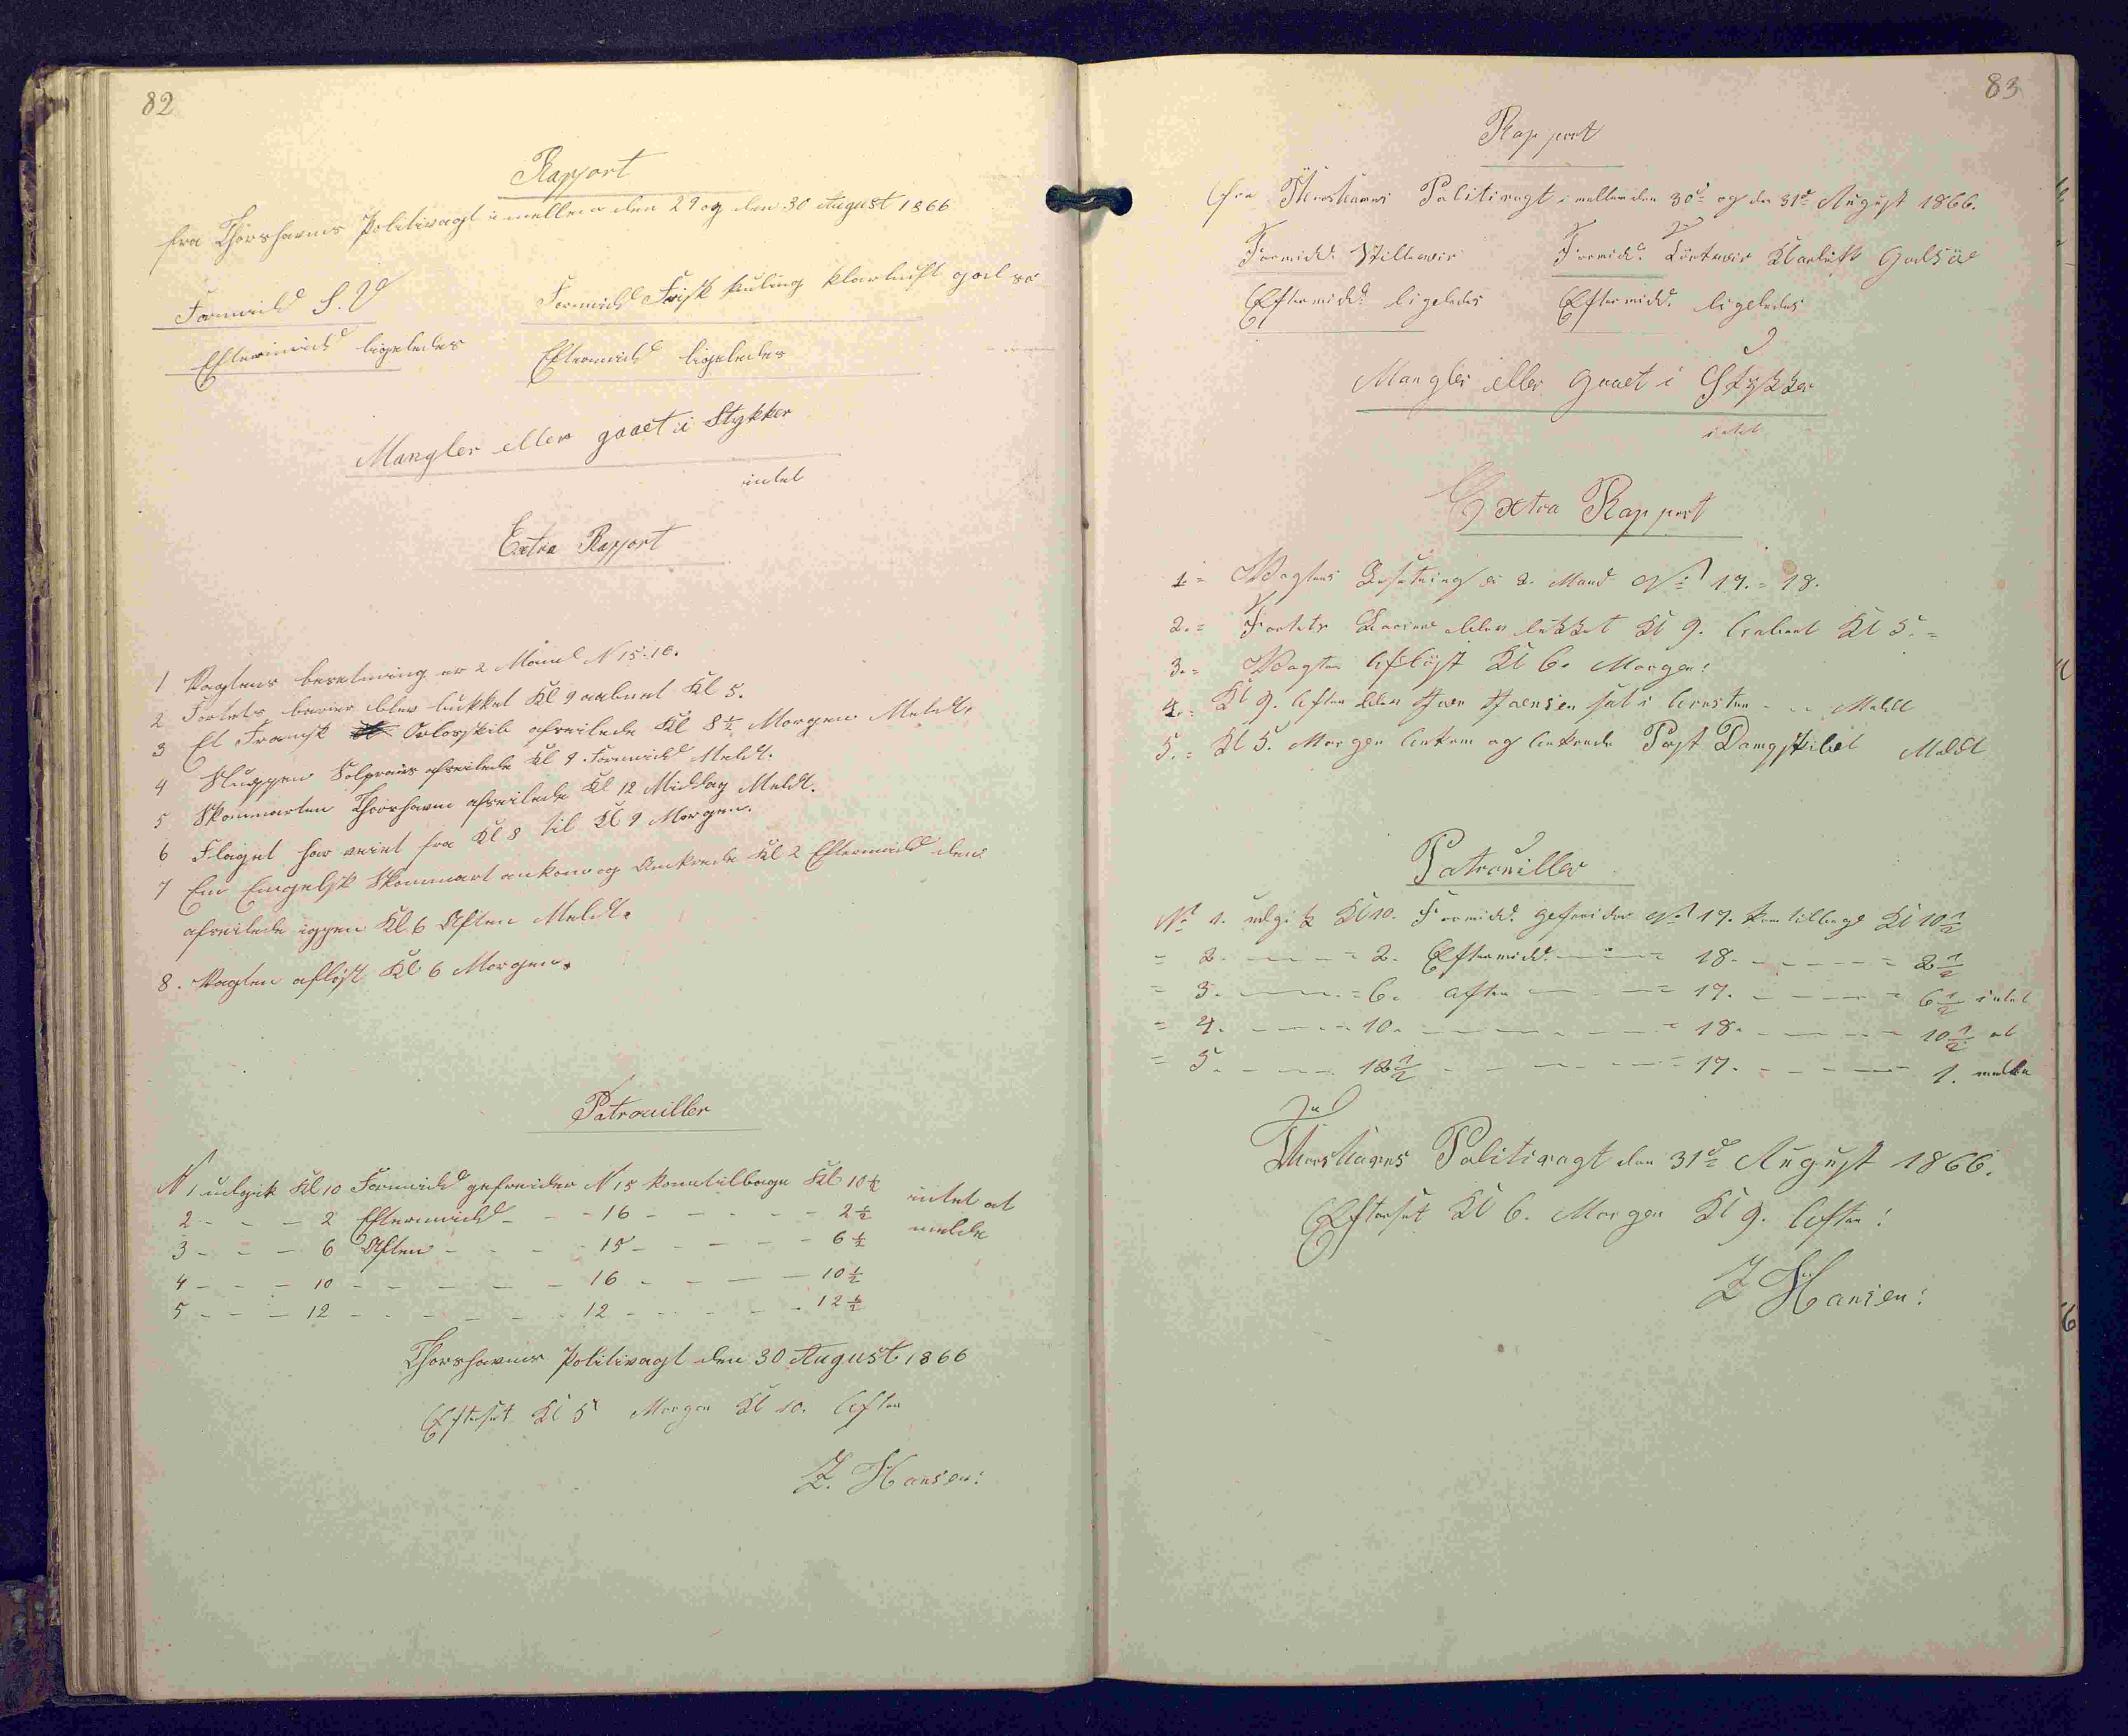 82
Rapport
fra Thorshavns Politivagt imellem den 29 og den 30 August 1866
Formidd S. V
Formidd Frisk kuling klarluft god sø
Eftermidd ligeledes
Eftermidd ligeledes
Mangler eller gaaet i Stykker
intet
Extra Rapport
1 Vagtens besetning er 2 Mand N 15.16.
2 Fortets barier blev lukket Kl 9 aabnet Kl 5.
3 Et Fransk Orlogskib afseilede Kl 8½ Morgen Meldt.
4 Sluppen afseilede Kl 9 Formidd Meldt.
5 Skonnarten Thorshavn afseilede Kl 12 Middag Meldt.
6 Flaget har veiet fra Kl 8 til Kl 9 Morgen.
7 En Engelsk Skonnart ankom og Ankrede Kl 2 Eftermidd den
afseilede iggen Kl 6 Aften Meldt.
8. Vagten afløst Kl 6 Morgen.
Patrouiller
N 1 udgik Kl 10 Formidd gefreider N 15 kom tilbage Kl 10½ intet at
2 - - - 2 Eftermidd - - - 16 - - - - - 2½ melde
3 - - - 6 Aften - - - - 15 - - - - - 6½
4 - - - 10 - - - - - - 16 - - - - 10½
5 - - - 12 - - - - - - 12 - - - - - 12½
Thorshavns Politivagt den 30 August 1866
Efterset Kl 5 Morgen Kl 10. Aften
Z. Hansen:
83
Rapport
fra Thorshavns Politivagt imellem den 30d og den 31d August 1866.
Formidd. Stilleveir
Formidd. Klarluft God Sø
Eftermidd. ligeledes
Eftermidd. ligeledes
Mangler eller Gaaet i Stykker
intet
Extra Rapport
1 = Vagtens Besetning er 2. Mand No 17. = 18.
2. = Fortets Bariere blev lukket Kl 9. Aabnet Kl 5. =
3. = Vagten Afløst Kl 6. Morgen:
4. = Kl 9. Aften blev Hansen sat i Aresten - .. Meldt
5. = Kl 5. Morgen Ankom og Ankrede Post Dampskibet Meldt
Patrouiller
No 1. udgik Kl 10. Formidd. Gefreider No 17. kom tilbage Kl 10½
= 2. - - - = 2. Eftermidd. - - = 18. - - - - = 2½
= 3. - - - = 6. Aften - - - = 17. - - - - = 6½ intet
= 4. - - - - 10. - - - - - = 18. - - - - = 10½ at
= 5. - - - 12½ - - - - - = 17. - - - - 1. melde
Thorshavns Politivagt den 31d August 1866.
Efterset Kl 6. Morgen Kl 9. Aften:
Z Hansen: